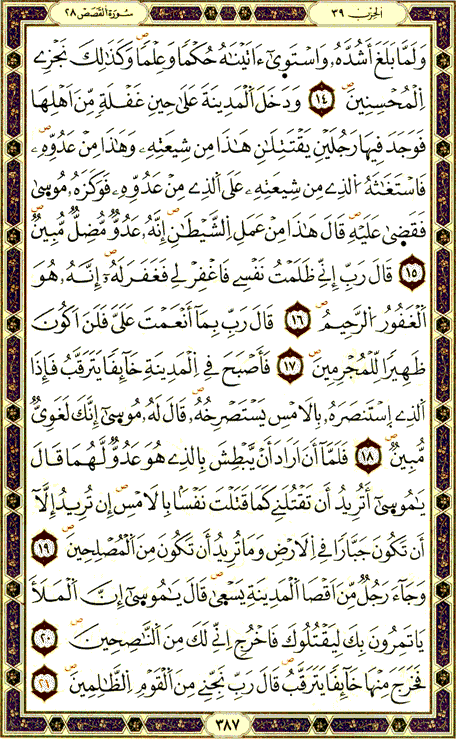 الحزب ٣٩
سورة القصص ٢٨
وَلَمَّا بَلَغَ أَشُدَّهُۥ وَاسْتَوۭىٰٓ ءَاتَيْنَٰهُ حُكْمًا وَعِلْمًاۖ وَكَذَٰلِكَ نَجْزِے
اِ۬لْمُحْسِنِينَۖ ١٤ وَدَخَلَ اَ۬لْمَدِينَةَ عَلَىٰ حِينِ غَفْلَةٍ مِّنَ اَهْلِهَا
فَوَجَدَ فِيهَا رَجُلَيْنِ يَقْتَتِلَٰنِ هَٰذَا مِن شِيعَتِهِۦ وَهَٰذَا مِنْ عَدُوِّهِۦۖ
فَاسْتَغَٰثَهُ اُ۬لذِے مِن شِيعَتِهِۦ عَلَى اَ۬لذِے مِنْ عَدُوِّهِۦ فَوَكَزَهُۥ مُوسۭىٰ
فَقَضۭىٰ عَلَيْهِۖ قَالَ هَٰذَا مِنْ عَمَلِ اِ۬لشَّيْطَٰنِۖ إِنَّهُۥ عَدُوٌّ مُّضِلٌّ مُّبِينٌۖ
١٥ قَالَ رَبِّ إِنِّے ظَلَمْتُ نَفْسِے فَاغْفِرْ لِے فَغَفَرَ لَهُۥٓۖ إِنَّهُۥ هُوَ
اَ۬لْغَفُورُ اُ۬لرَّحِيمُۖ ١٦ قَالَ رَبِّ بِمَآ أَنْعَمْتَ عَلَيَّ فَلَنَ اَكُونَ
ظَهِيرًا لِّلْمُجْرِمِينَۖ ١٧ فَأَصْبَحَ فِے اِ۬لْمَدِينَةِ خَآئِفًا يَتَرَقَّبُ فَإِذَا
اَ۬لذِے اِ۪سْتَنصَرَهُۥ بِالَامْسِ يَسْتَصْرِخُهُۥۖ قَالَ لَهُۥ مُوسۭىٰٓ إِنَّكَ لَغَوِيٌّ
مُّبِينٌۖ ١٨ فَلَمَّآ أَنَ اَرَادَ أَنْ يَّبْطِشَ بِالذِے هُوَ عَدُوٌّ لَّهُمَا قَالَ
يَٰمُوسۭىٰٓ أَتُرِيدُ أَن تَقْتُلَنِے كَمَا قَتَلْتَ نَفْسًاۢ بِالَامْسِۖ إِن تُرِيدُ إِلَّآ
أَن تَكُونَ جَبَّارًا فِے اِ۬لَارْضِ وَمَا تُرِيدُ أَن تَكُونَ مِنَ اَ۬لْمُصْلِحِينَۖ ١٩
وَجَآءَ رَجُلٌ مِّنَ اَقْصَا اَ۬لْمَدِينَةِ يَسْعۭىٰۖ قَالَ يَٰمُوسۭىٰٓ إِنَّ اَ۬لْمَلَأَ
يَاتَمِرُونَ بِكَ لِيَقْتُلُوكَ فَاخْرُجِ اِنِّے لَكَ مِنَ اَ۬لنَّٰصِحِينَۖ ٢٠
فَخَرَجَ مِنْهَا خَآئِفًا يَتَرَقَّبُۖ قَالَ رَبِّ نَجِّنِے مِنَ اَ۬لْقَوْمِ اِ۬لظَّٰلِمِينَۖ ٢١
٣٨٧